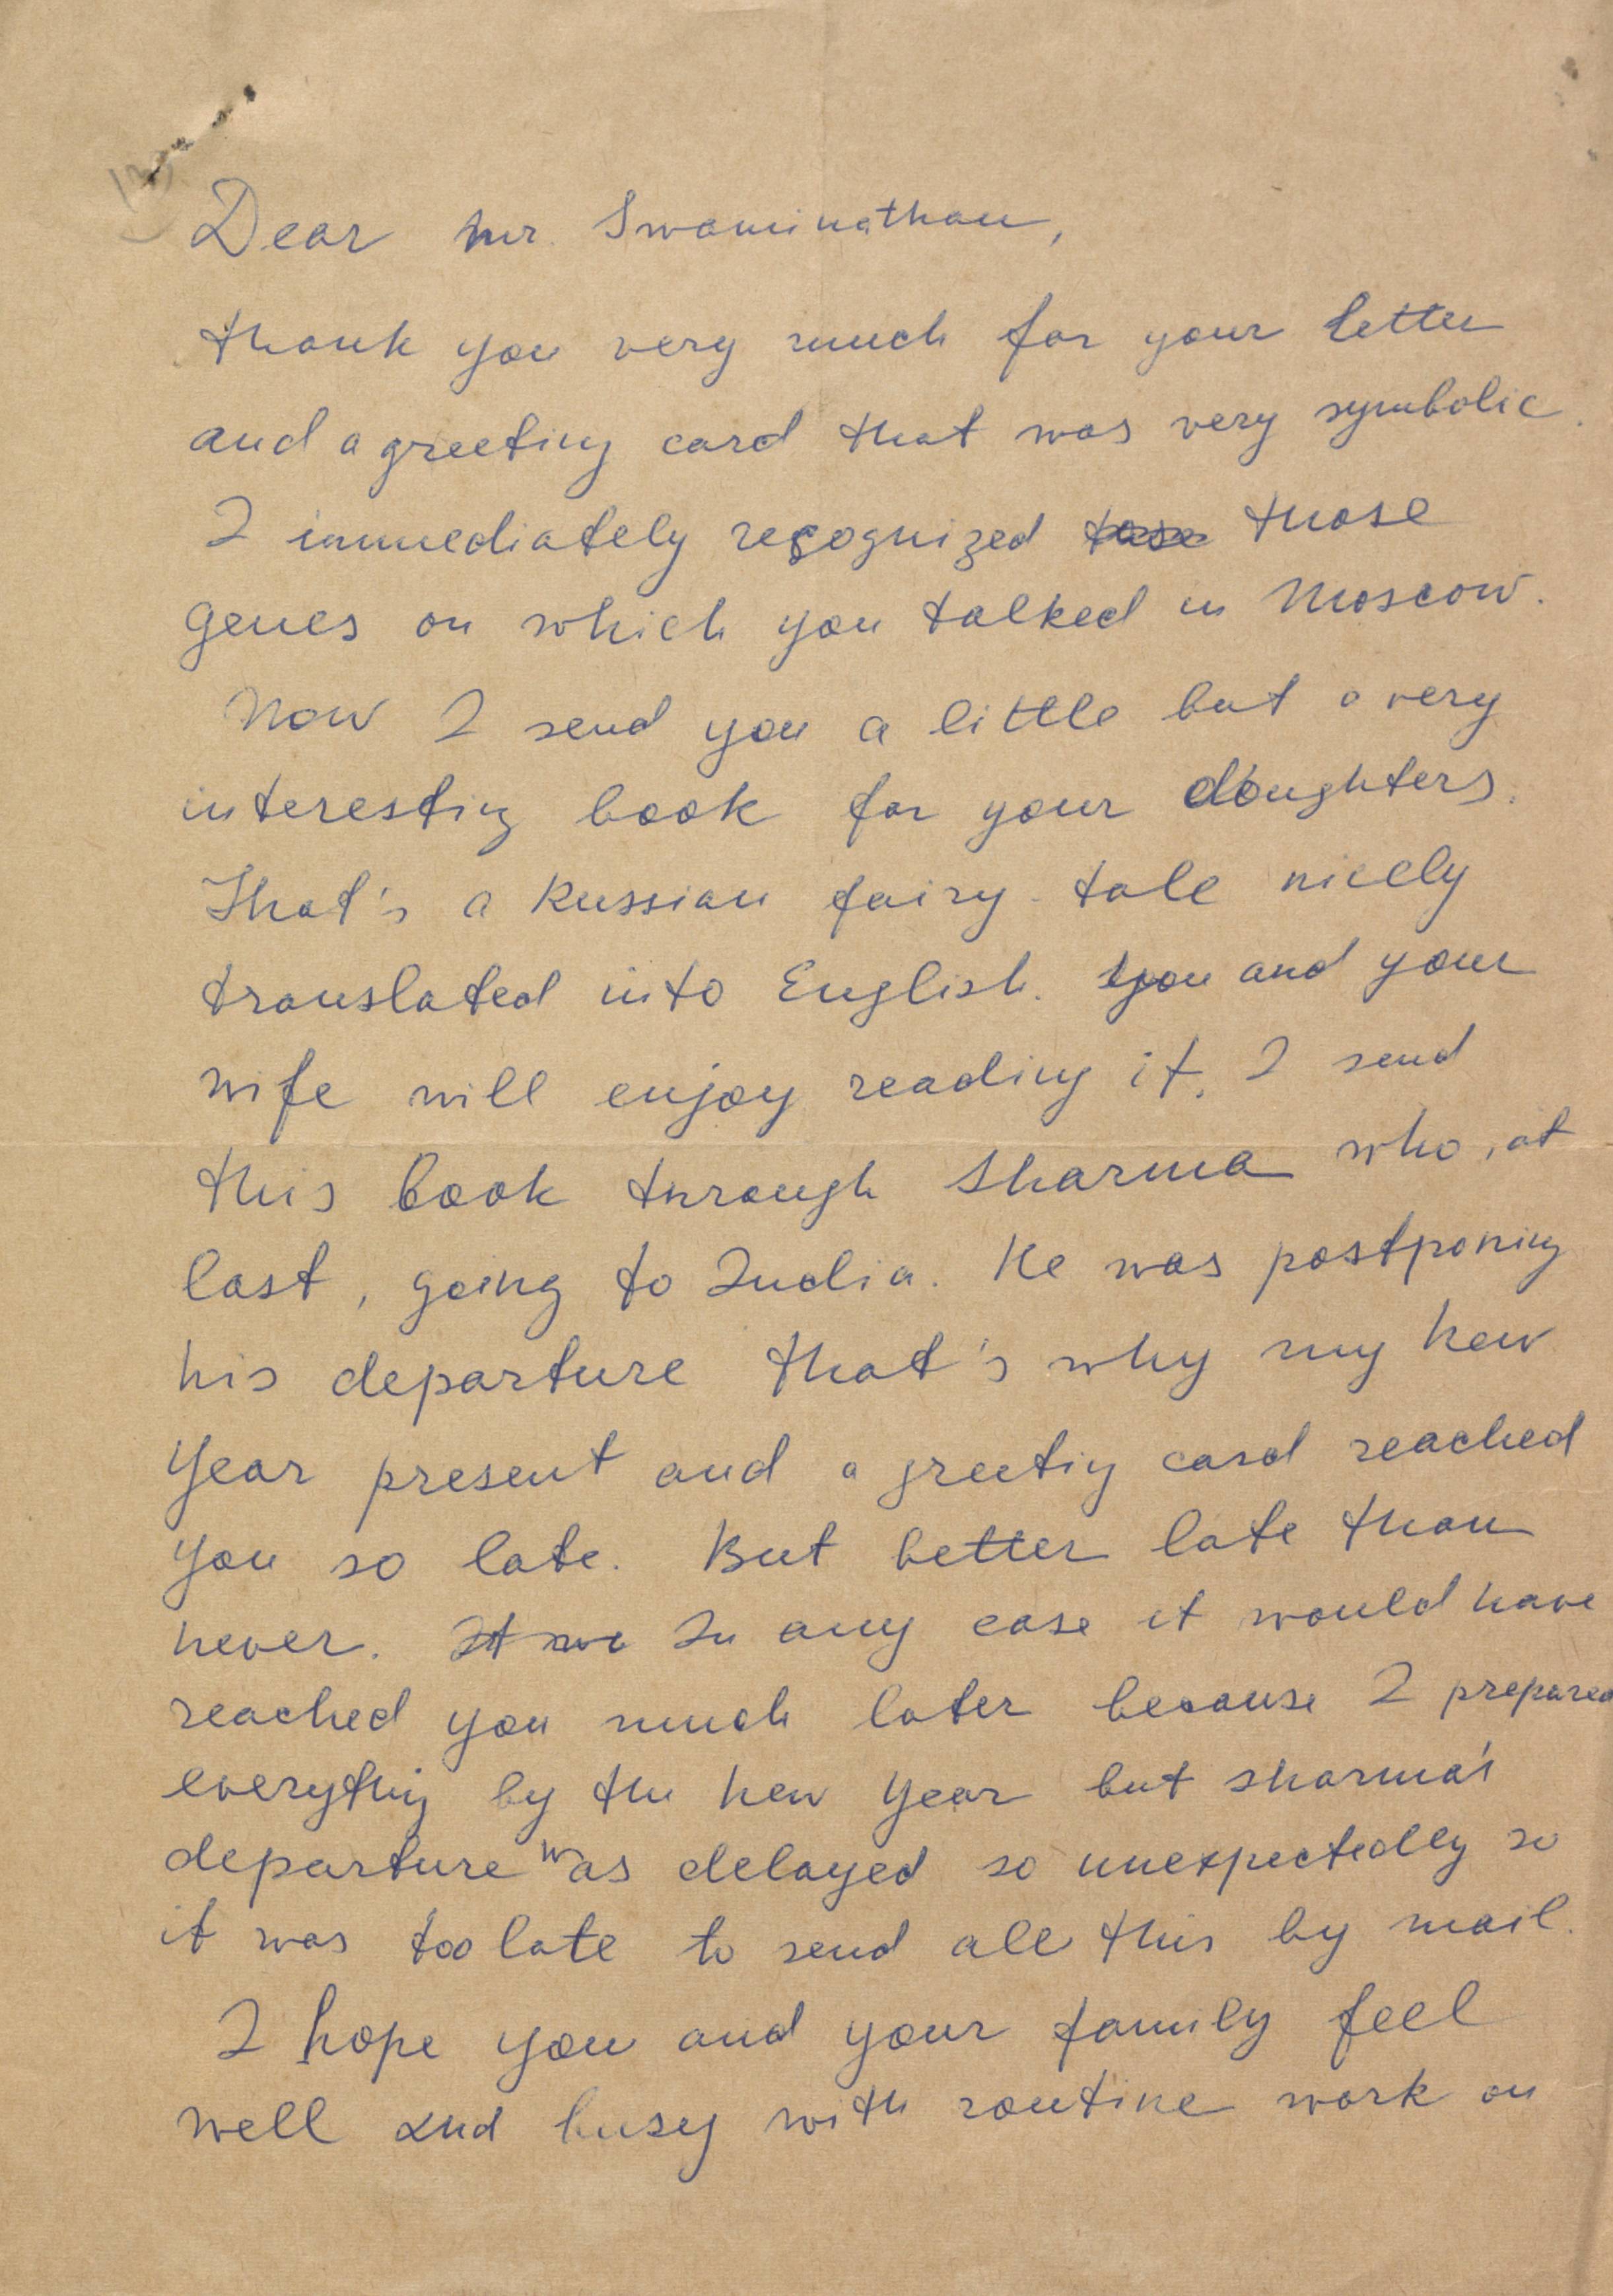 Dear Mr. Swaminathan,
thank you very much for your letter
and a greeting card that was very symbolic.
I immediately recognized those
genes on which you talked in Moscow.
Now I send you a little but a very
interesting book for your doughters.
That's a Russian fairy-tale nicely
translated into English. You and your
wife will enjoy reading it. I send
this book through Sharma who, at
last, going to India. He was postponing
his departure that's why my New
Year present and a greeting card reached
you so late. But better late than
never. It we In any case it would have
reached you much later because I prepared
everything by the New Year but Sharma's
departure was delayed so unexpectedly so
it was too late to send all this by mail.
I hope you and your family feel
well and busy with routine work on